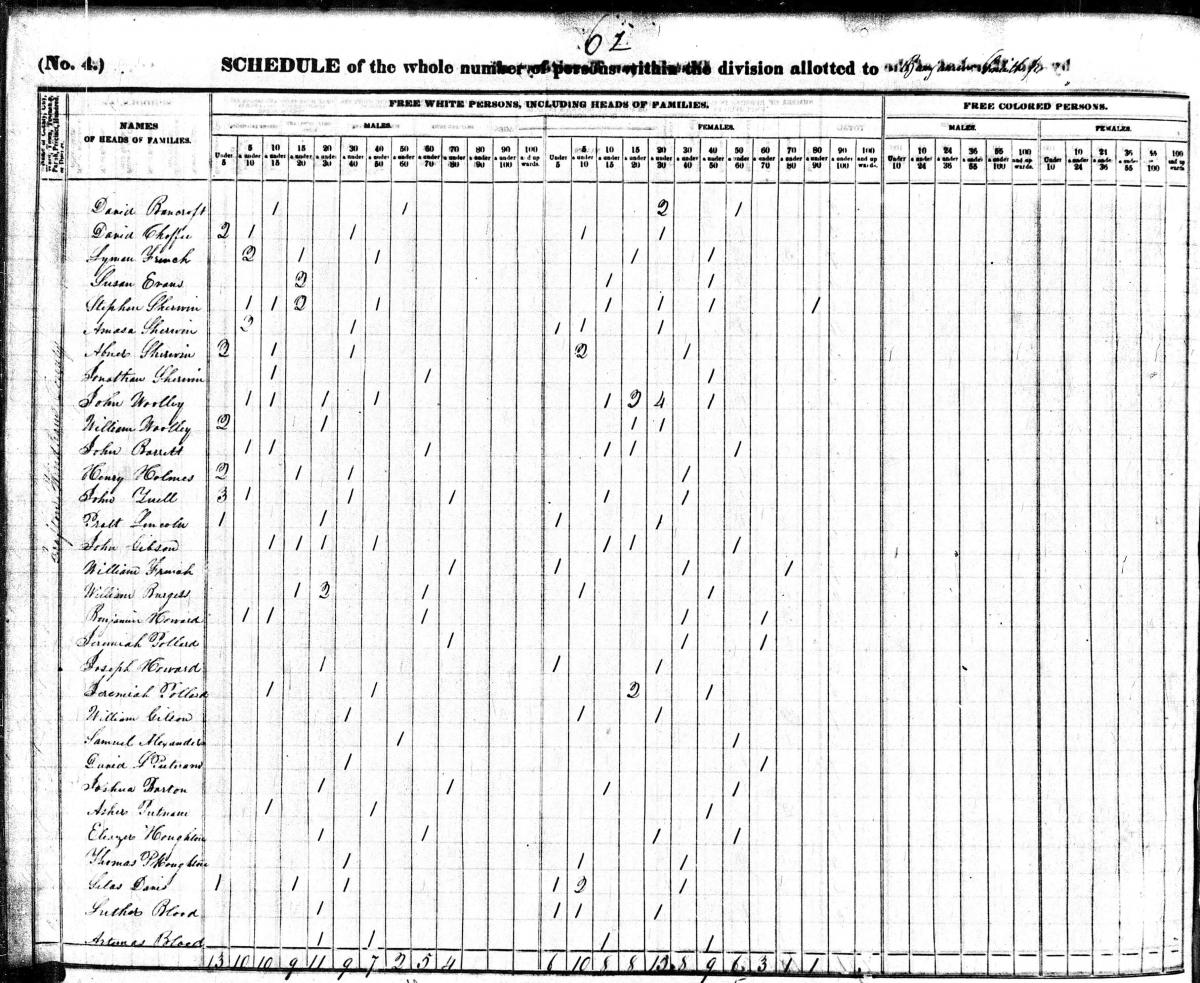 62
(No. 4.) SCHEDULE of the whole number of persons within the division allotted to
FREE WHITE PERSONS, INCLUDING HEADS OF FAMILIES. FREE COLORED PERSONS.
NAMES OF HEADS OF FAMILIES. MALES. FEMALES. MALES. FEMALES.
Under 5 | 5 & under 10 | 10 & under 15 | 15 & under 20 | 20 & under 30 | 30 & under 40 | 40 & under 50 | 50 & under 60 | 60 & under 70 | 70 & under 80 | 80 & under 90 | 90 & under 100 | 100 and up wards. | Under 5 | 5 & under 10 | 10 & under 15 | 15 & under 20 | 20 & under 30 | 30 & under 40 | 40 & under 50 | 50 & under 60 | 60 & under 70 | 70 & under 80 | 80 & under 90 | 90 & under 100 | 100 and up wards. | Under 10 | 10 24 | 24 36 | 36 55 | 55 100 | 100 and up wards. | Under 10 | 10 24 | 24 36 | 36 55 | 55 100 | 100 and up wards
David Bancroft 1 1 2 1
David 2 1 1 1 1
Lyman French 2 1 1 1 1
Susan Evans 2 1 1
Stephen Sherwin 1 1 2 1 1 1 1 1
Amasa Sherwin 2 1 1 1 1
Abner Sherwin 2 1 1 2 1
Jonathan Sherwin 1 1 1
John Woolley 1 1 1 1 1 2 4 1
William Woolley 2 1 1 1
John Barrett 1 1 1 1 1 1
Henry Holmes 2 1 1 1
John 3 1 1 1 1 1
Pratt Lincoln 1 1 1 1
John Gibson 1 1 1 1 1 1 1
William French 1 1 1 1
William Burgess 1 2 1 1 1
Benjamin Howard 1 1 1 1 1
Jeremiah Pollard 1 1 1
Joseph Howard 1 1 1
Jeremiah Pollard 1 1 2 1
William Gilson 1 1 1
Samuel Alexander 1 1
David Putnam 1 1
Joshua Barton 1 1 1 1
Asher Putnam 1 1 1
Eliezer Houghton 1 1 1 1
Thomas Houghton 1 1 1
Silas Davis 1 1 1 1 2 1
Luther Blood 1 1 1 1
Artemas Blood 1 1 1 1
13 10 10 9 11 9 7 2 5 4 6 10 8 8 13 8 9 6 3 1 1